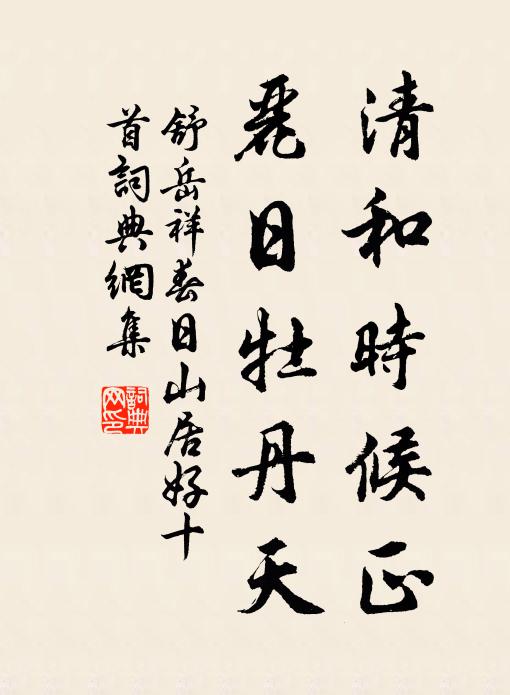 清和時候正
麗日牡丹天
舒岳祥春日山居好十
首詞典網集
詞典網印